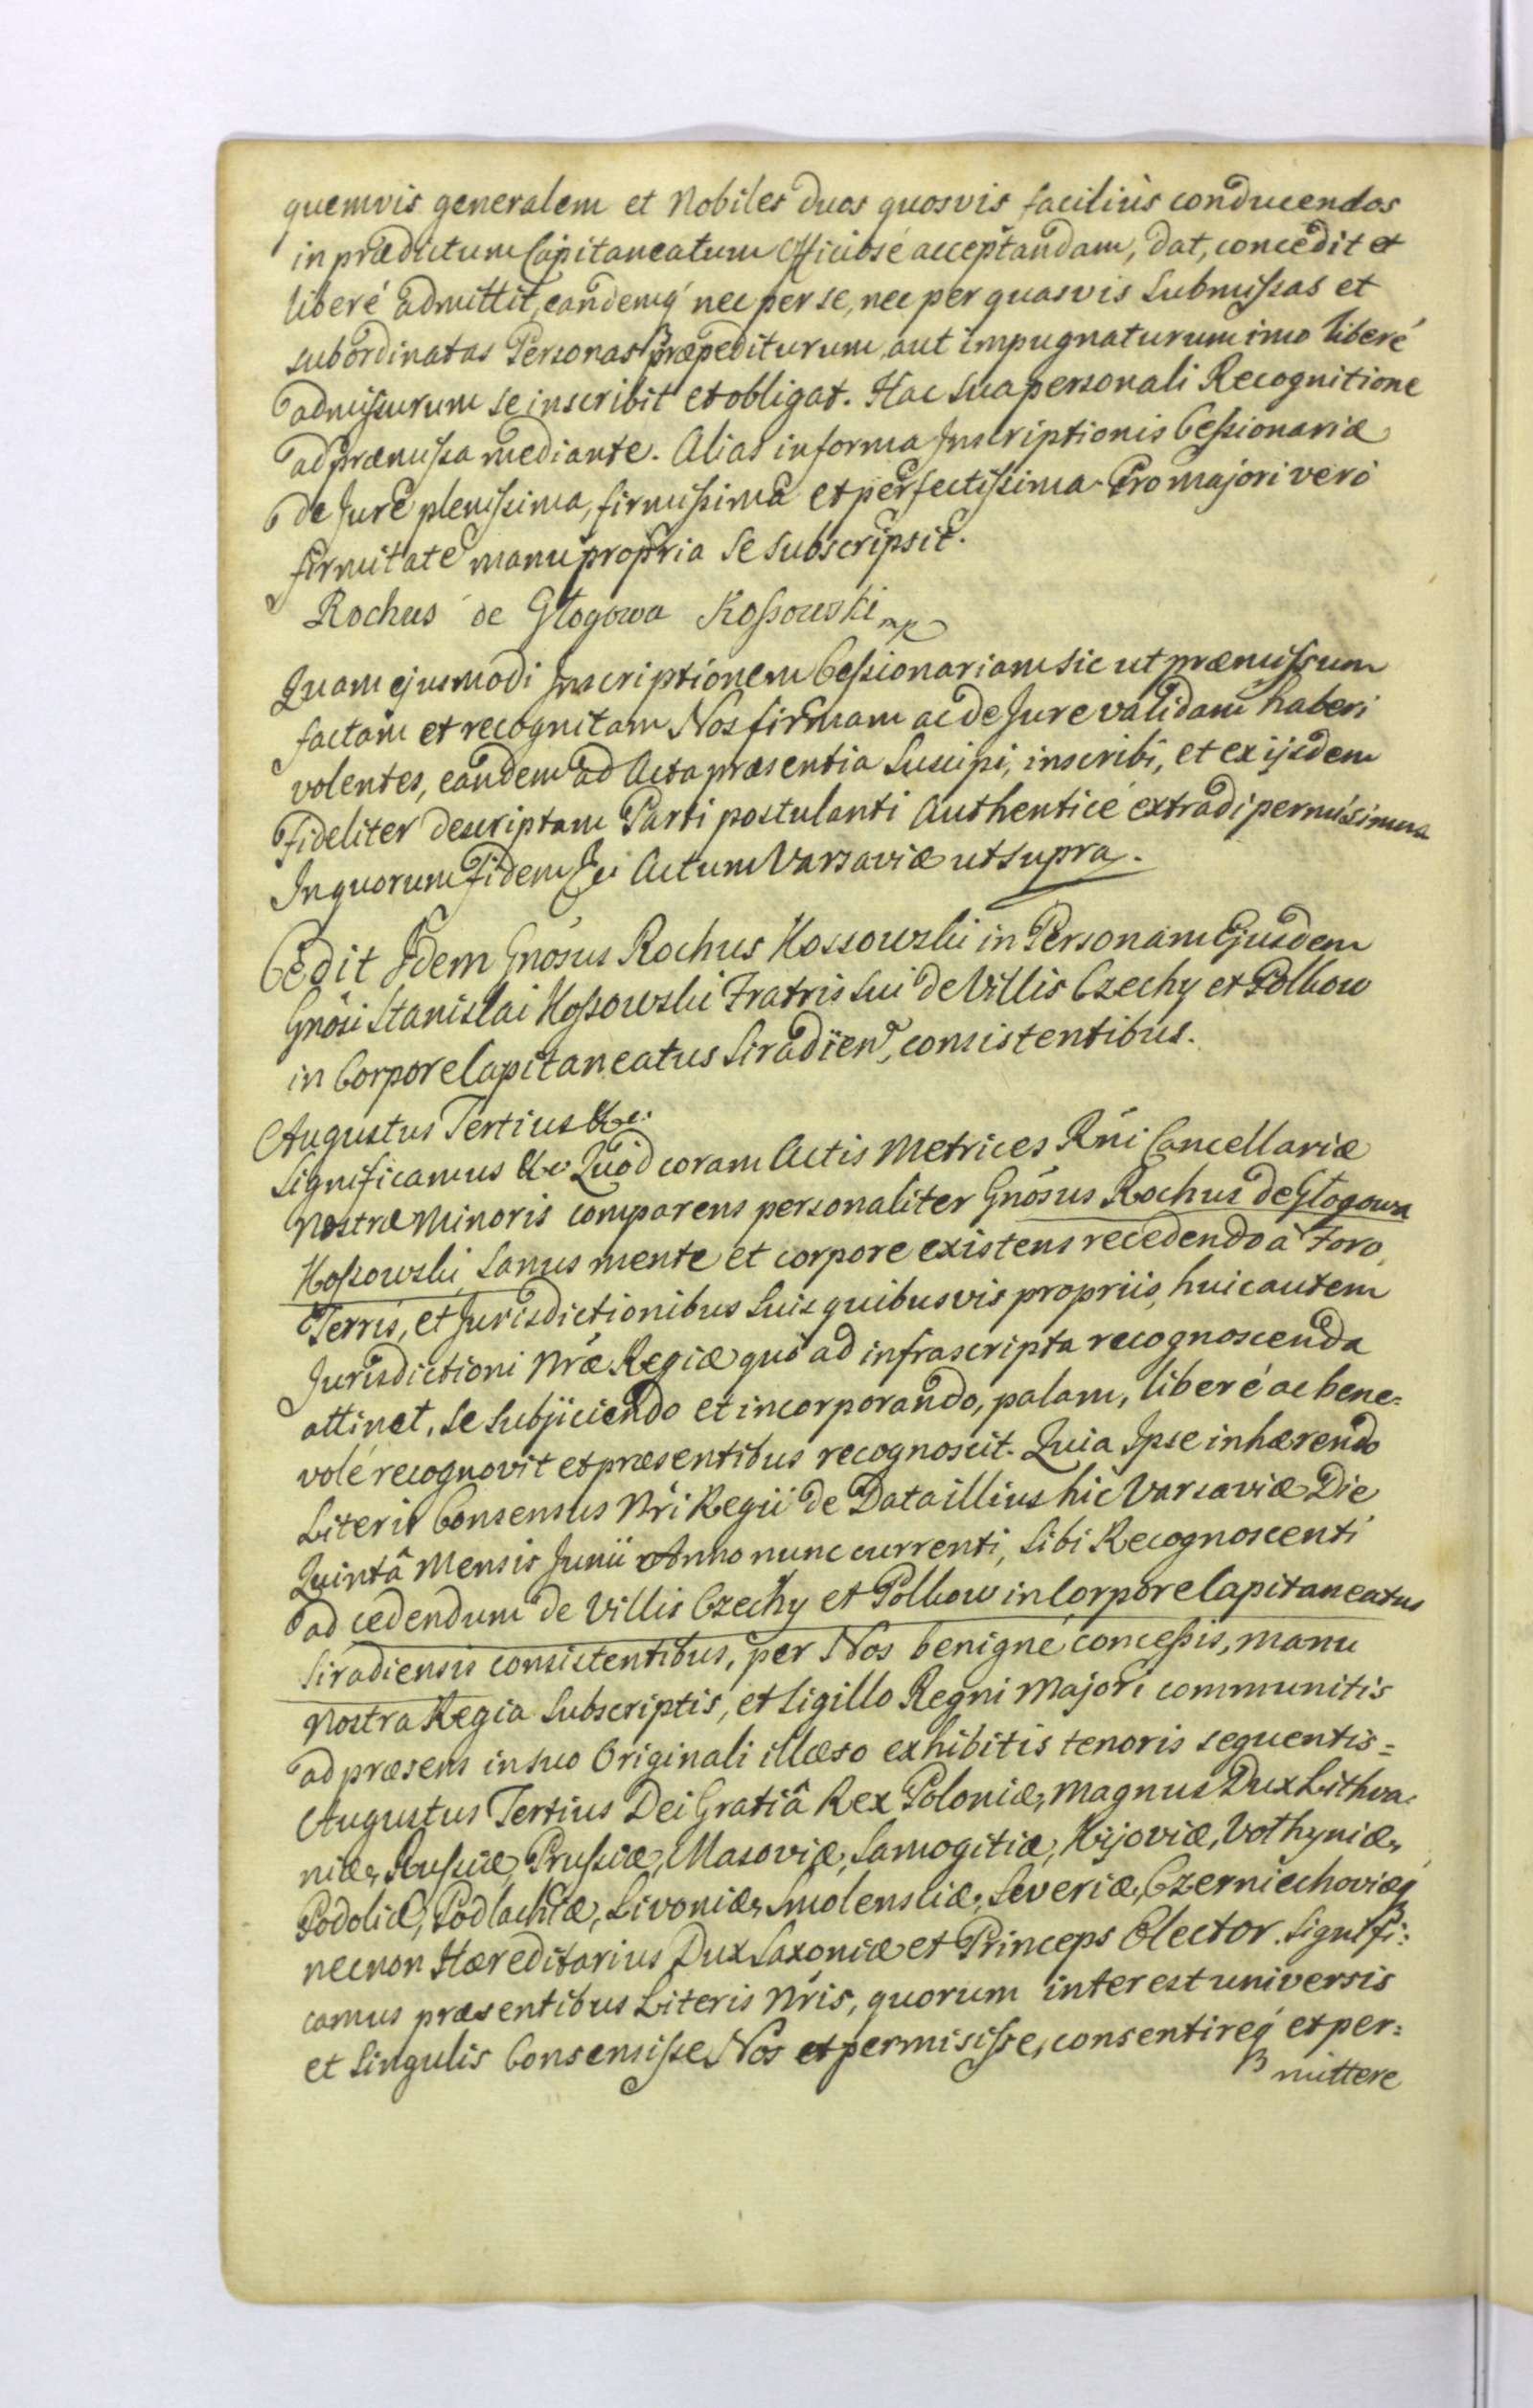 quemvis generalem et Nobiles duos quosvis faciliùs conducendos
in prædictum Capitaneatum Officiosé acceptandam, dat, concedit et
liberé admittit, eandemq́ nec per se, nec per quasvis Submissas et
subordinatas Personas præpediturum aut impugnaturum imo liberé
admissurum se inscribit et obligat. Hac sua personali Recognitione
ad præmissa mediante. Alias in forma Inscriptionis Cessionariæ
de Jure plenissima, firmissima et perfectissima. Pro majori veró
firmitate manu propria se subscripsit.
Rochus de Głogowa Kossowski mp
Quam ejusmodi Inscriptionem Cessionariam sic ut præmissum
factam et recognitam Nos firmam ac de Jure validam haberi
volentes, eandem ad Acta præsentia Suscipi, inscribi, et ex ijsdem
fideliter descriptam Parti postulanti Authenticé extradi permisimus
In quorum fidem &c Actum Varsaviæ ut supra.
Cedit Idem Gnosus Rochus Kossowski in Personam Ejusdem
Gnosi Stanislai Kossowski Fratris sui de Villis Czechy et Polkow
in Corpore Capitaneatus Siradien, consistentibus.
Augustus Tertius &c.
Significamus &c Quod coram Actis Metrices Rni Cancellariæ
Nostræ Minoris comparens personaliter Gnosus Rochus de Głogowa
Kossowski, Sanus mente et corpore existens recedendo à Foro,
Terris, et Jurisdictionibus Suis quibusvis propriis, huic autem
Jurisdictioni Nræ Regiæ quó ad infrascripta recognoscenda
attinet, se subjiciendo et incorporando, palam, liberé ac bene-
volé recognovit et præsentibus recognoscit. Quia Ipse inhærendo
Literis Consensus Nri Regii de Data illius hic Varsaviæ Die
Quintâ Mensis Junii Anno nunc currenti, Sibi Recognoscenti
ad cedendum de Villis Czechy et Polkow in Corpore Capitaneatus
Siradiensis consistentibus, per Nos benigné concessis, manu
Nostra Regia Subscriptis, et Sigillo Regni Majori communitis
ad præsens in suo Originali illæso exhibitis tenoris sequentis =
Augustus Tertius Dei Gratiâ Rex Poloniæ, Magnus Dux Lithva-
niæ, Russiæ, Prussiæ, Masoviæ, Samogitiæ, Kijoviæ, Volhyniæ,
Podoliæ, Podlachiæ, Livoniæ, Smolensciæ, Severiæ, Czerniechoviæq́
necnon Hæreditarius Dux Saxoniæ et Princeps Elector. Signifi:
camus præsentibus Literis Nris, quorum interest universis
et Singulis Consensisse Nos et permisisse, consentireq́ et per:
mittere